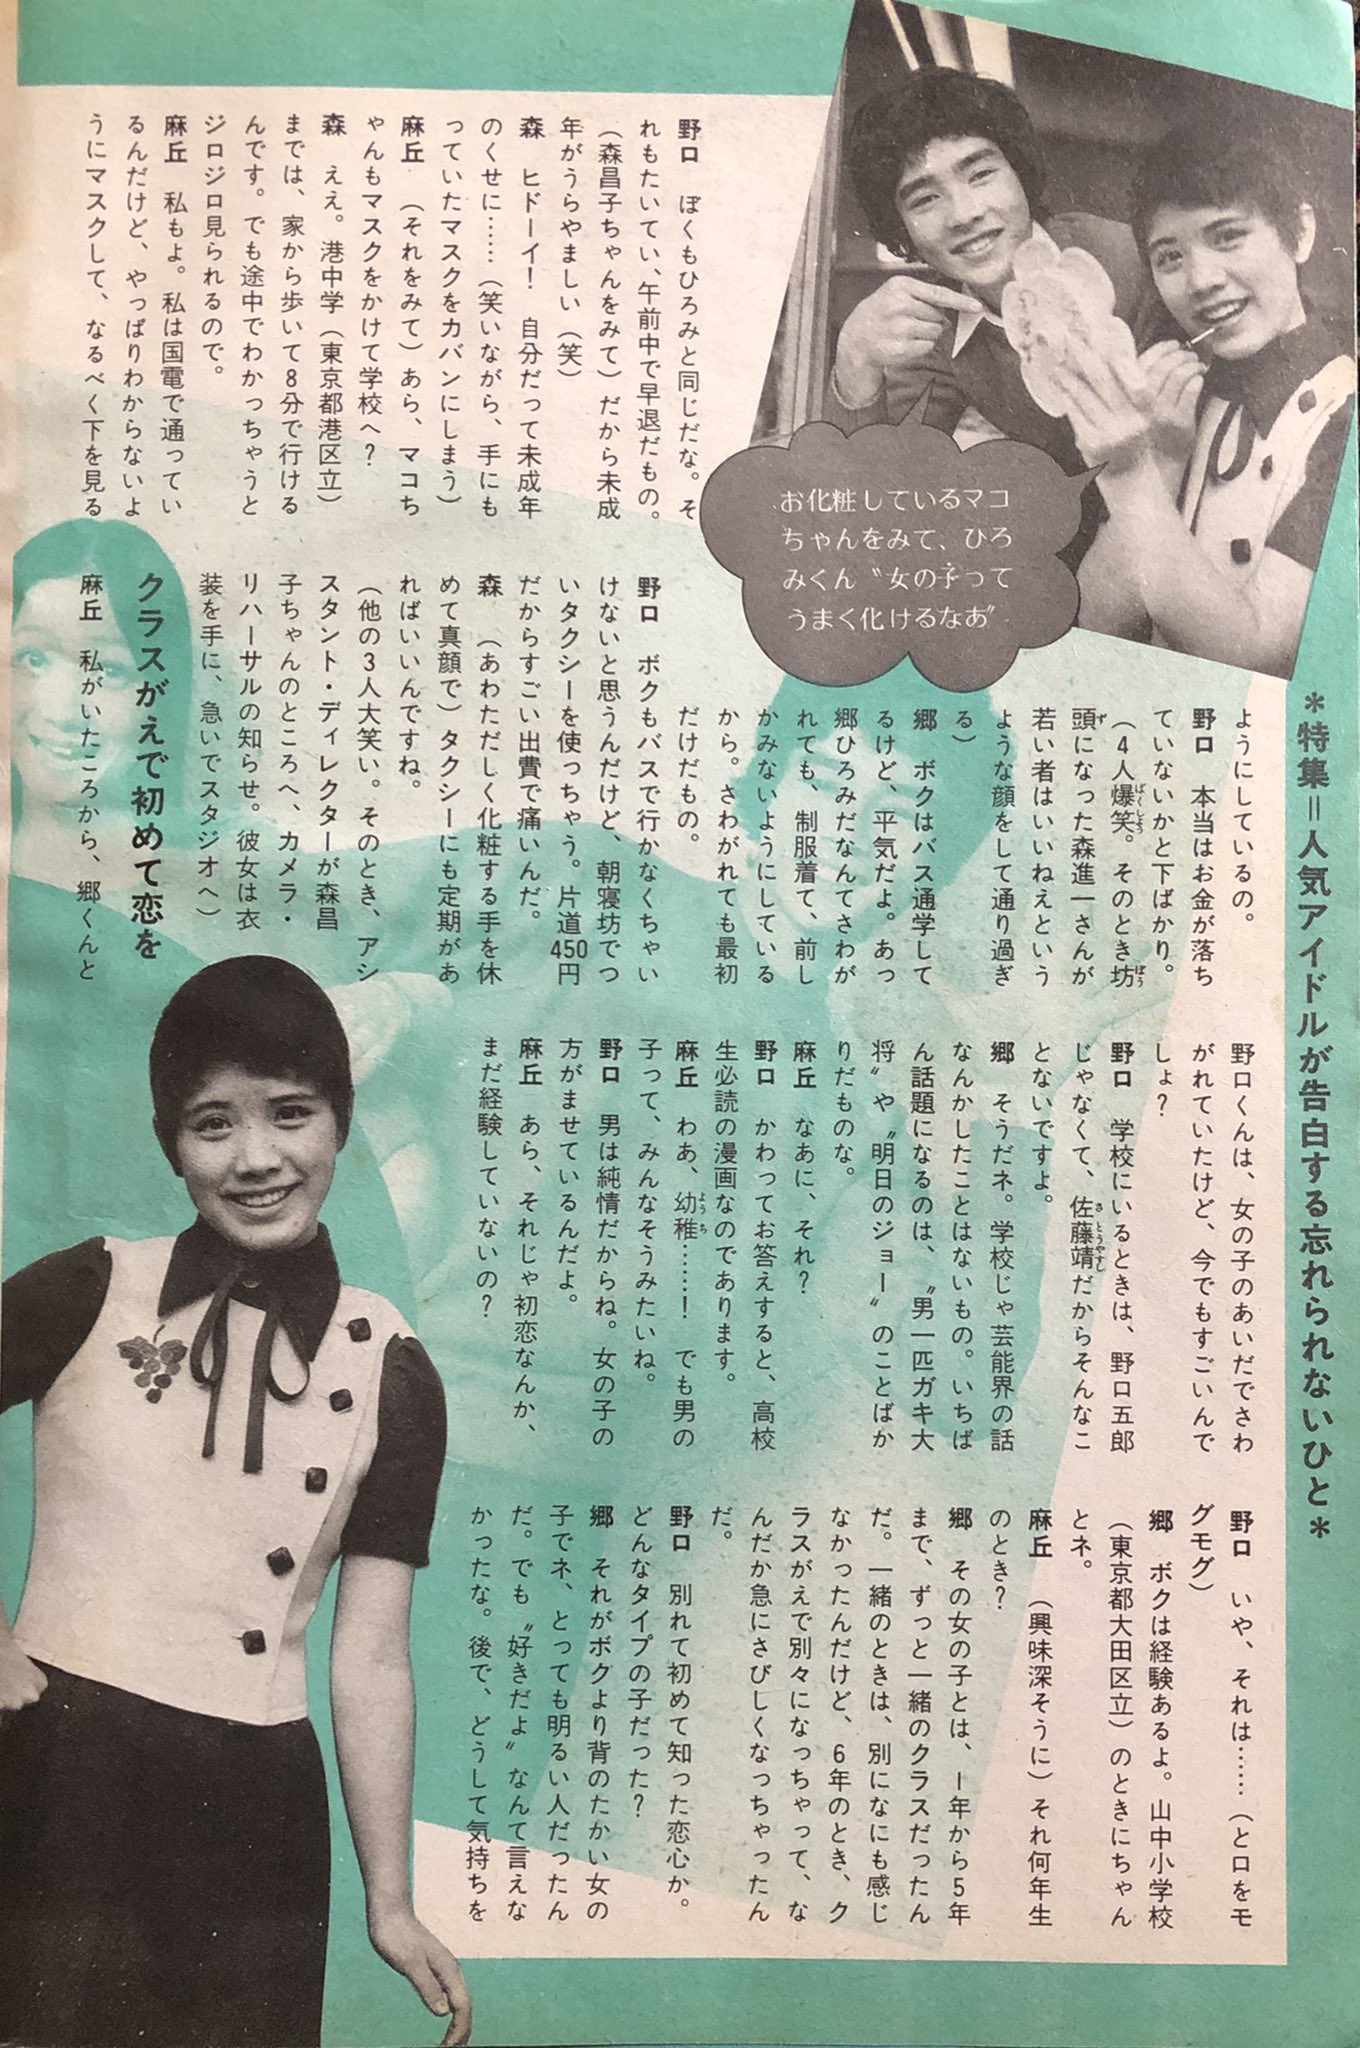 ＊特集＝人気アイドルが告白する忘れられないひと＊
お化粧しているマコ
ちゃんをみて、ひろ
みくん〝女の子って
うまく化けるなあ〟
野口　ぼくもひろみと同じだな。そ
れもたいてい、午前中で早退だもの。
（森昌子ちゃんをみて）だから未成
年がうらやましい（笑）
森　ヒドーイ！　自分だって未成年
のくせに……（笑いながら、手にも
っていたマスクをカバンにしまう）
麻丘　（それをみて）あら、マコち
ゃんもマスクをかけて学校へ？
森　ええ。港中学（東京都港区立）
までは、家から歩いて8分で行ける
んです。でも途中でわかっちゃうと
ジロジロ見られるので。
麻丘　私もよ。私は国電で通ってい
るんだけど、やっぱりわからないよ
うにマスクして、なるべく下を見る
ようにしているの。
野口　本当はお金が落ち
ていないかと下ばかり。
（4人爆笑。そのとき坊
頭になった森進一さんが
若い者はいいねえという
ような顔をして通り過ぎ
る）
郷　ボクはバス通学して
るけど、平気だよ。あっ
郷ひろみだなんてさわが
れても、制服着て、前し
かみないようにしている
から。さわがれても最初
だけだもの。
野口　ボクもバスで行かなくちゃい
けないと思うんだけど、朝寝坊でつ
いタクシーを使っちゃう。片道450円
だからすごい出費で痛いんだ。
森　（あわただしく化粧する手を休
めて真顔で）タクシーにも定期があ
ればいいんですね。
（他の3人大笑い。そのとき、アシ
スタント・ディレクターが森昌
子ちゃんのところへ、カメラ・
リハーサルの知らせ。彼女は衣
装を手に、急いでスタジオへ）
クラスがえで初めて恋を
麻丘　私がいたころから、郷くんと
野口くんは、女の子のあいだでさわ
がれていたけど、今でもすごいんで
しょ？
野口　学校にいるときは、野口五郎
じゃなくて、佐藤靖だからそんなこ
とないですよ。
郷　そうだネ。学校じゃ芸能界の話
なんかしたことはないもの。いちば
ん話題になるのは、〝男一匹ガキ大
将〟や〝明日のジョー〟のことばか
りだものな。
麻丘　なあに、それ？
野口　かわってお答えすると、高校
生必読の漫画なのであります。
麻丘　わあ、幼稚……！　でも男の
子って、みんなそうみたいね。
野口　男は純情だからね。女の子の
方がませているんだよ。
麻丘　あら、それじゃ初恋なんか、
まだ経験していないの？
野口　いや、それは……（と口をモ
グモグ）
郷　ボクは経験あるよ。山中小学校
（東京都大田区立）のときにちゃん
とネ。
麻丘　（興味深そうに）それ何年生
のとき？
郷　その女の子とは、1年から5年
まで、ずっと一緒のクラスだったん
だ。一緒のときは、別になにも感じ
なかったんだけど、6年のとき、ク
ラスがえで別々になっちゃって、な
んだか急にさびしくなっちゃったん
だ。
野口　別れて初めて知った恋心か。
どんなタイプの子だった？
郷　それがボクより背のたかい女の
子でネ、とっても明るい人だったん
だ。でも〝好きだよ〟なんて言えな
かったな。後で、どうして気持ちを